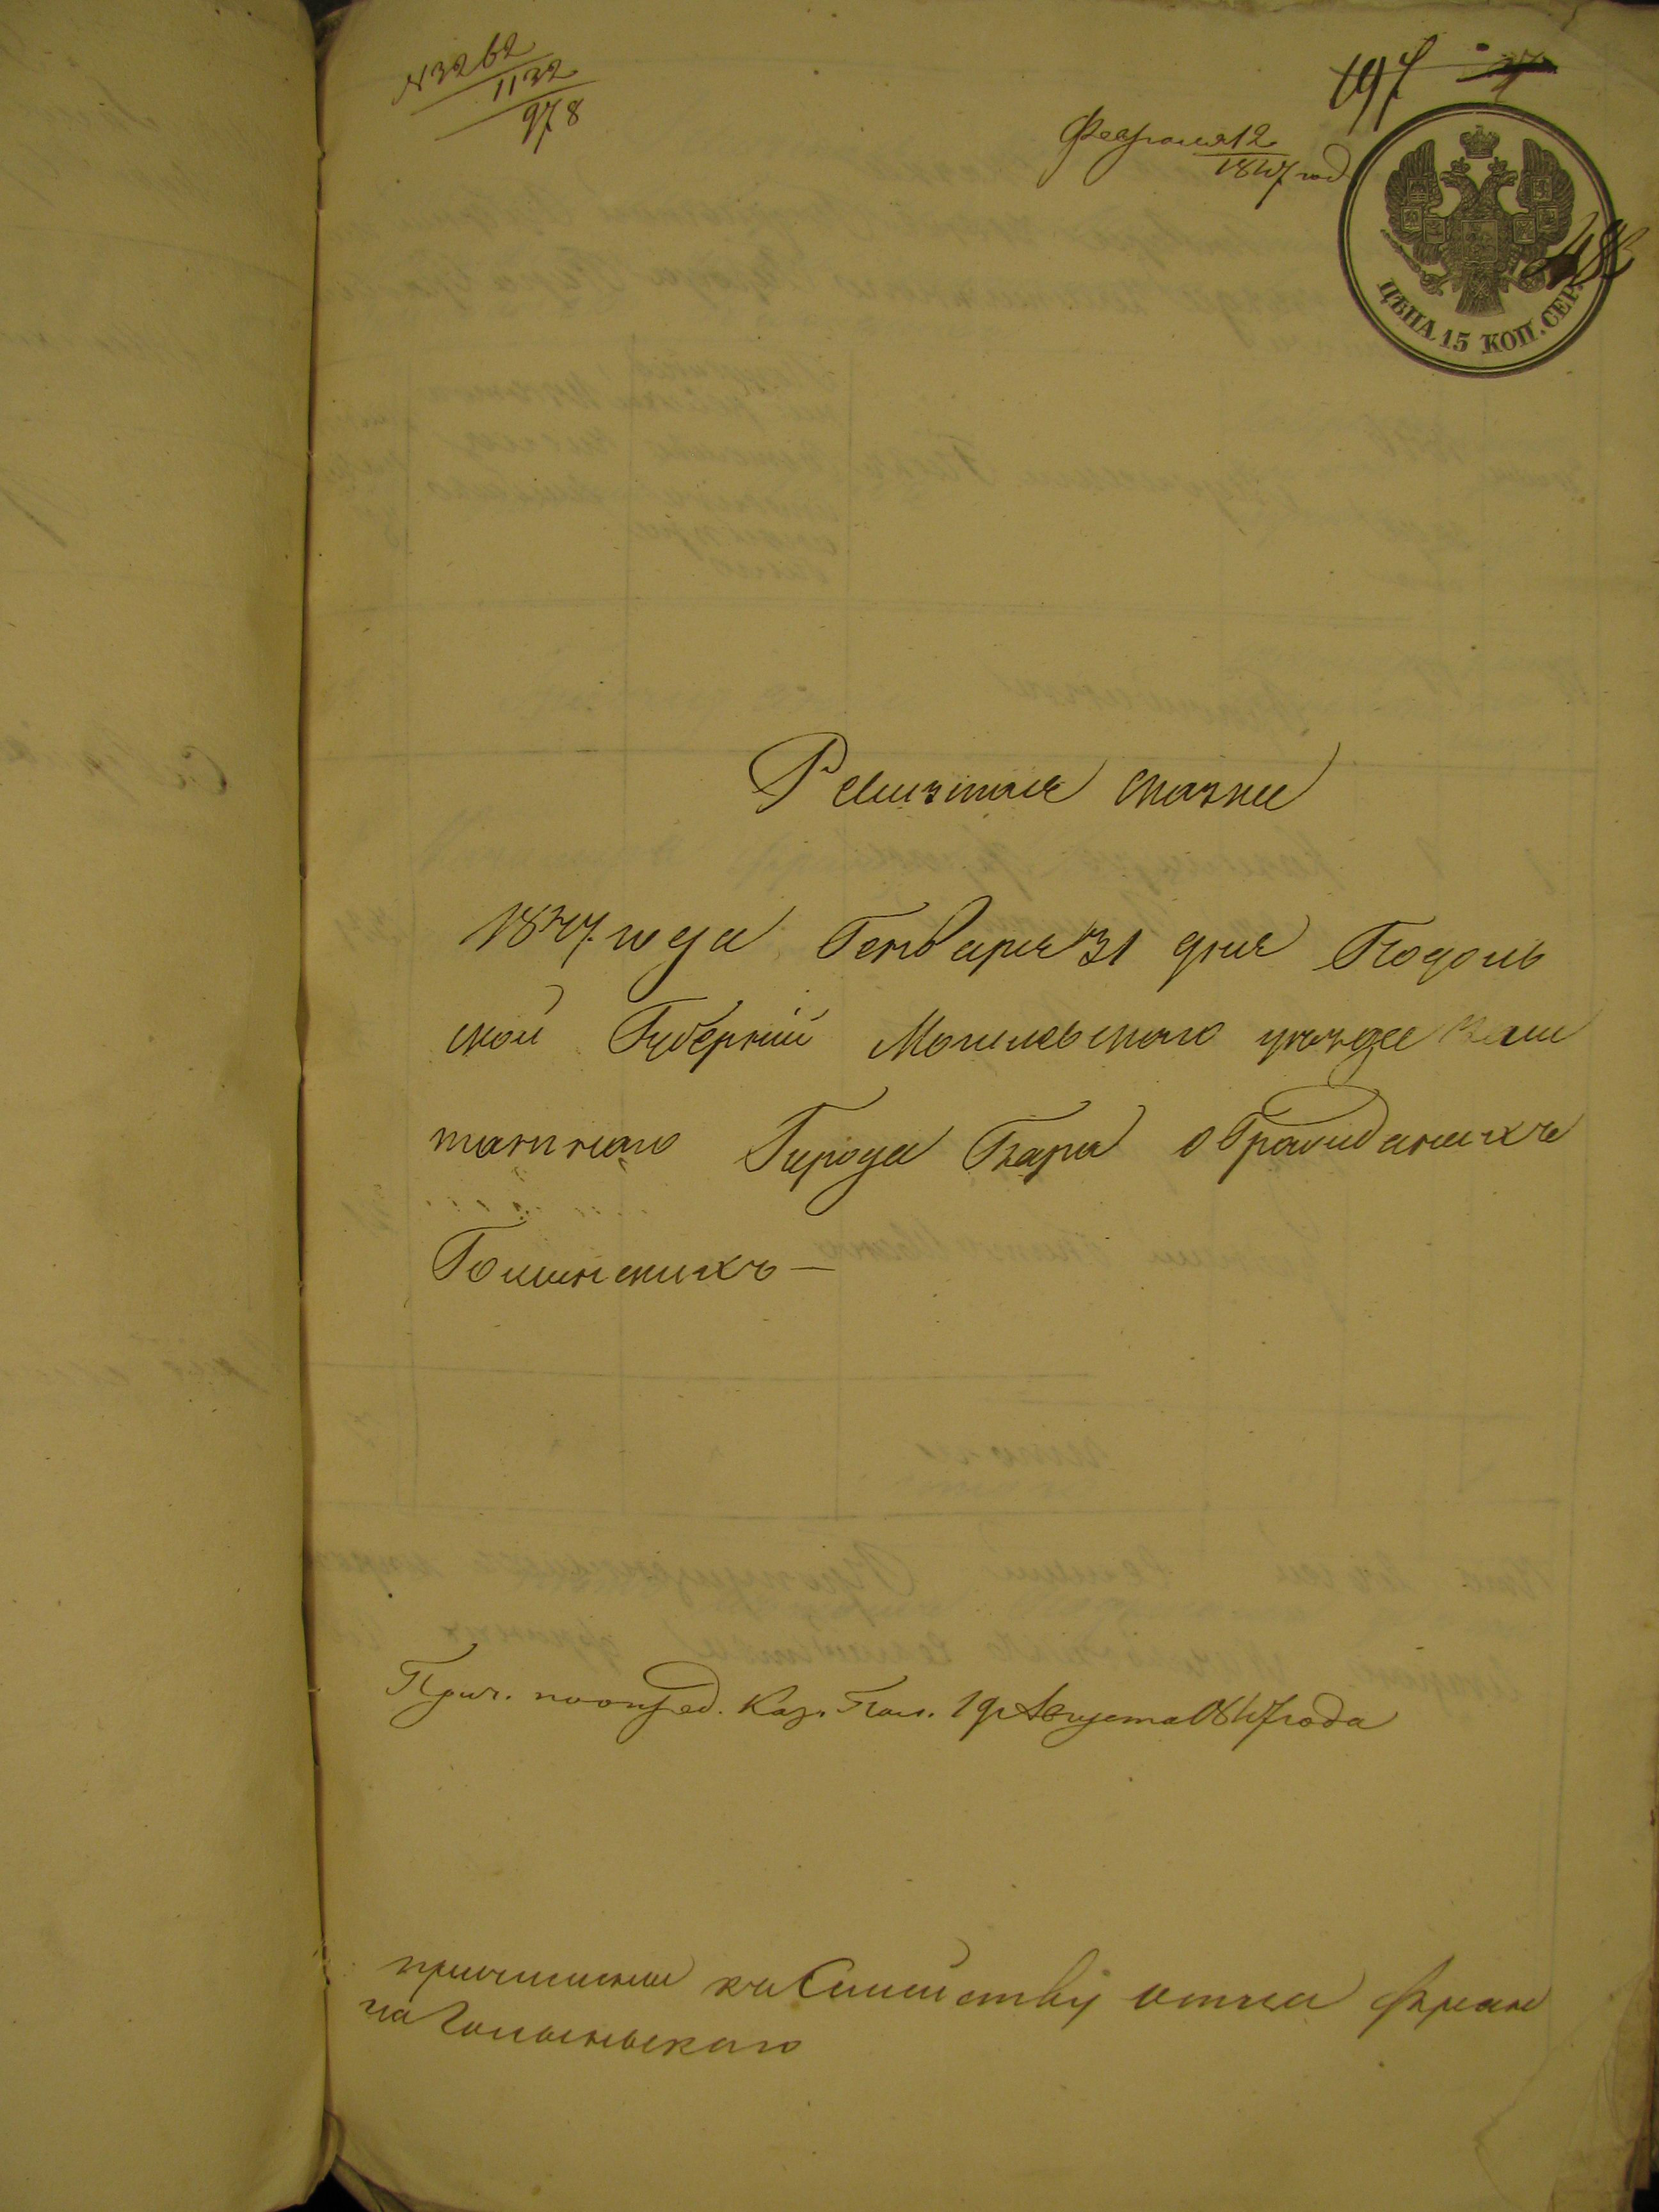 № 3262
1132
978
197
Февраля 12
1847 год
ЦѢНА 15 КОП. СЕР.
Ревизская сказка
1847 года Генваря 31 дня Подоль
ской Губерніи Могилевскаго уѣзда
татнаго Города Бара о Гражданахъ
Голинскихъ —
Прич. по опред. Каз. Пал. 19 Августа 1847 года
причислены къ Симейству отца Фран
ца Голыньскаго